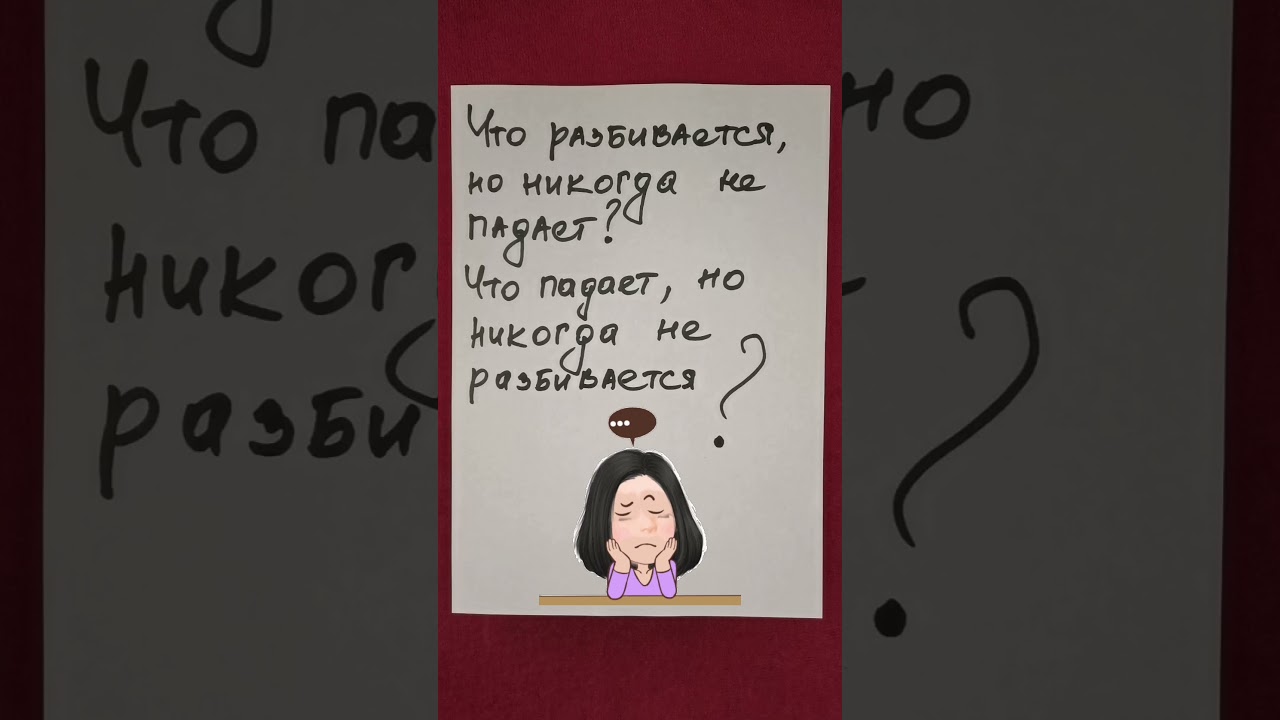 Что разбивается,
но никогда не
падает?
Что падает, но
никогда не
разбивается
?